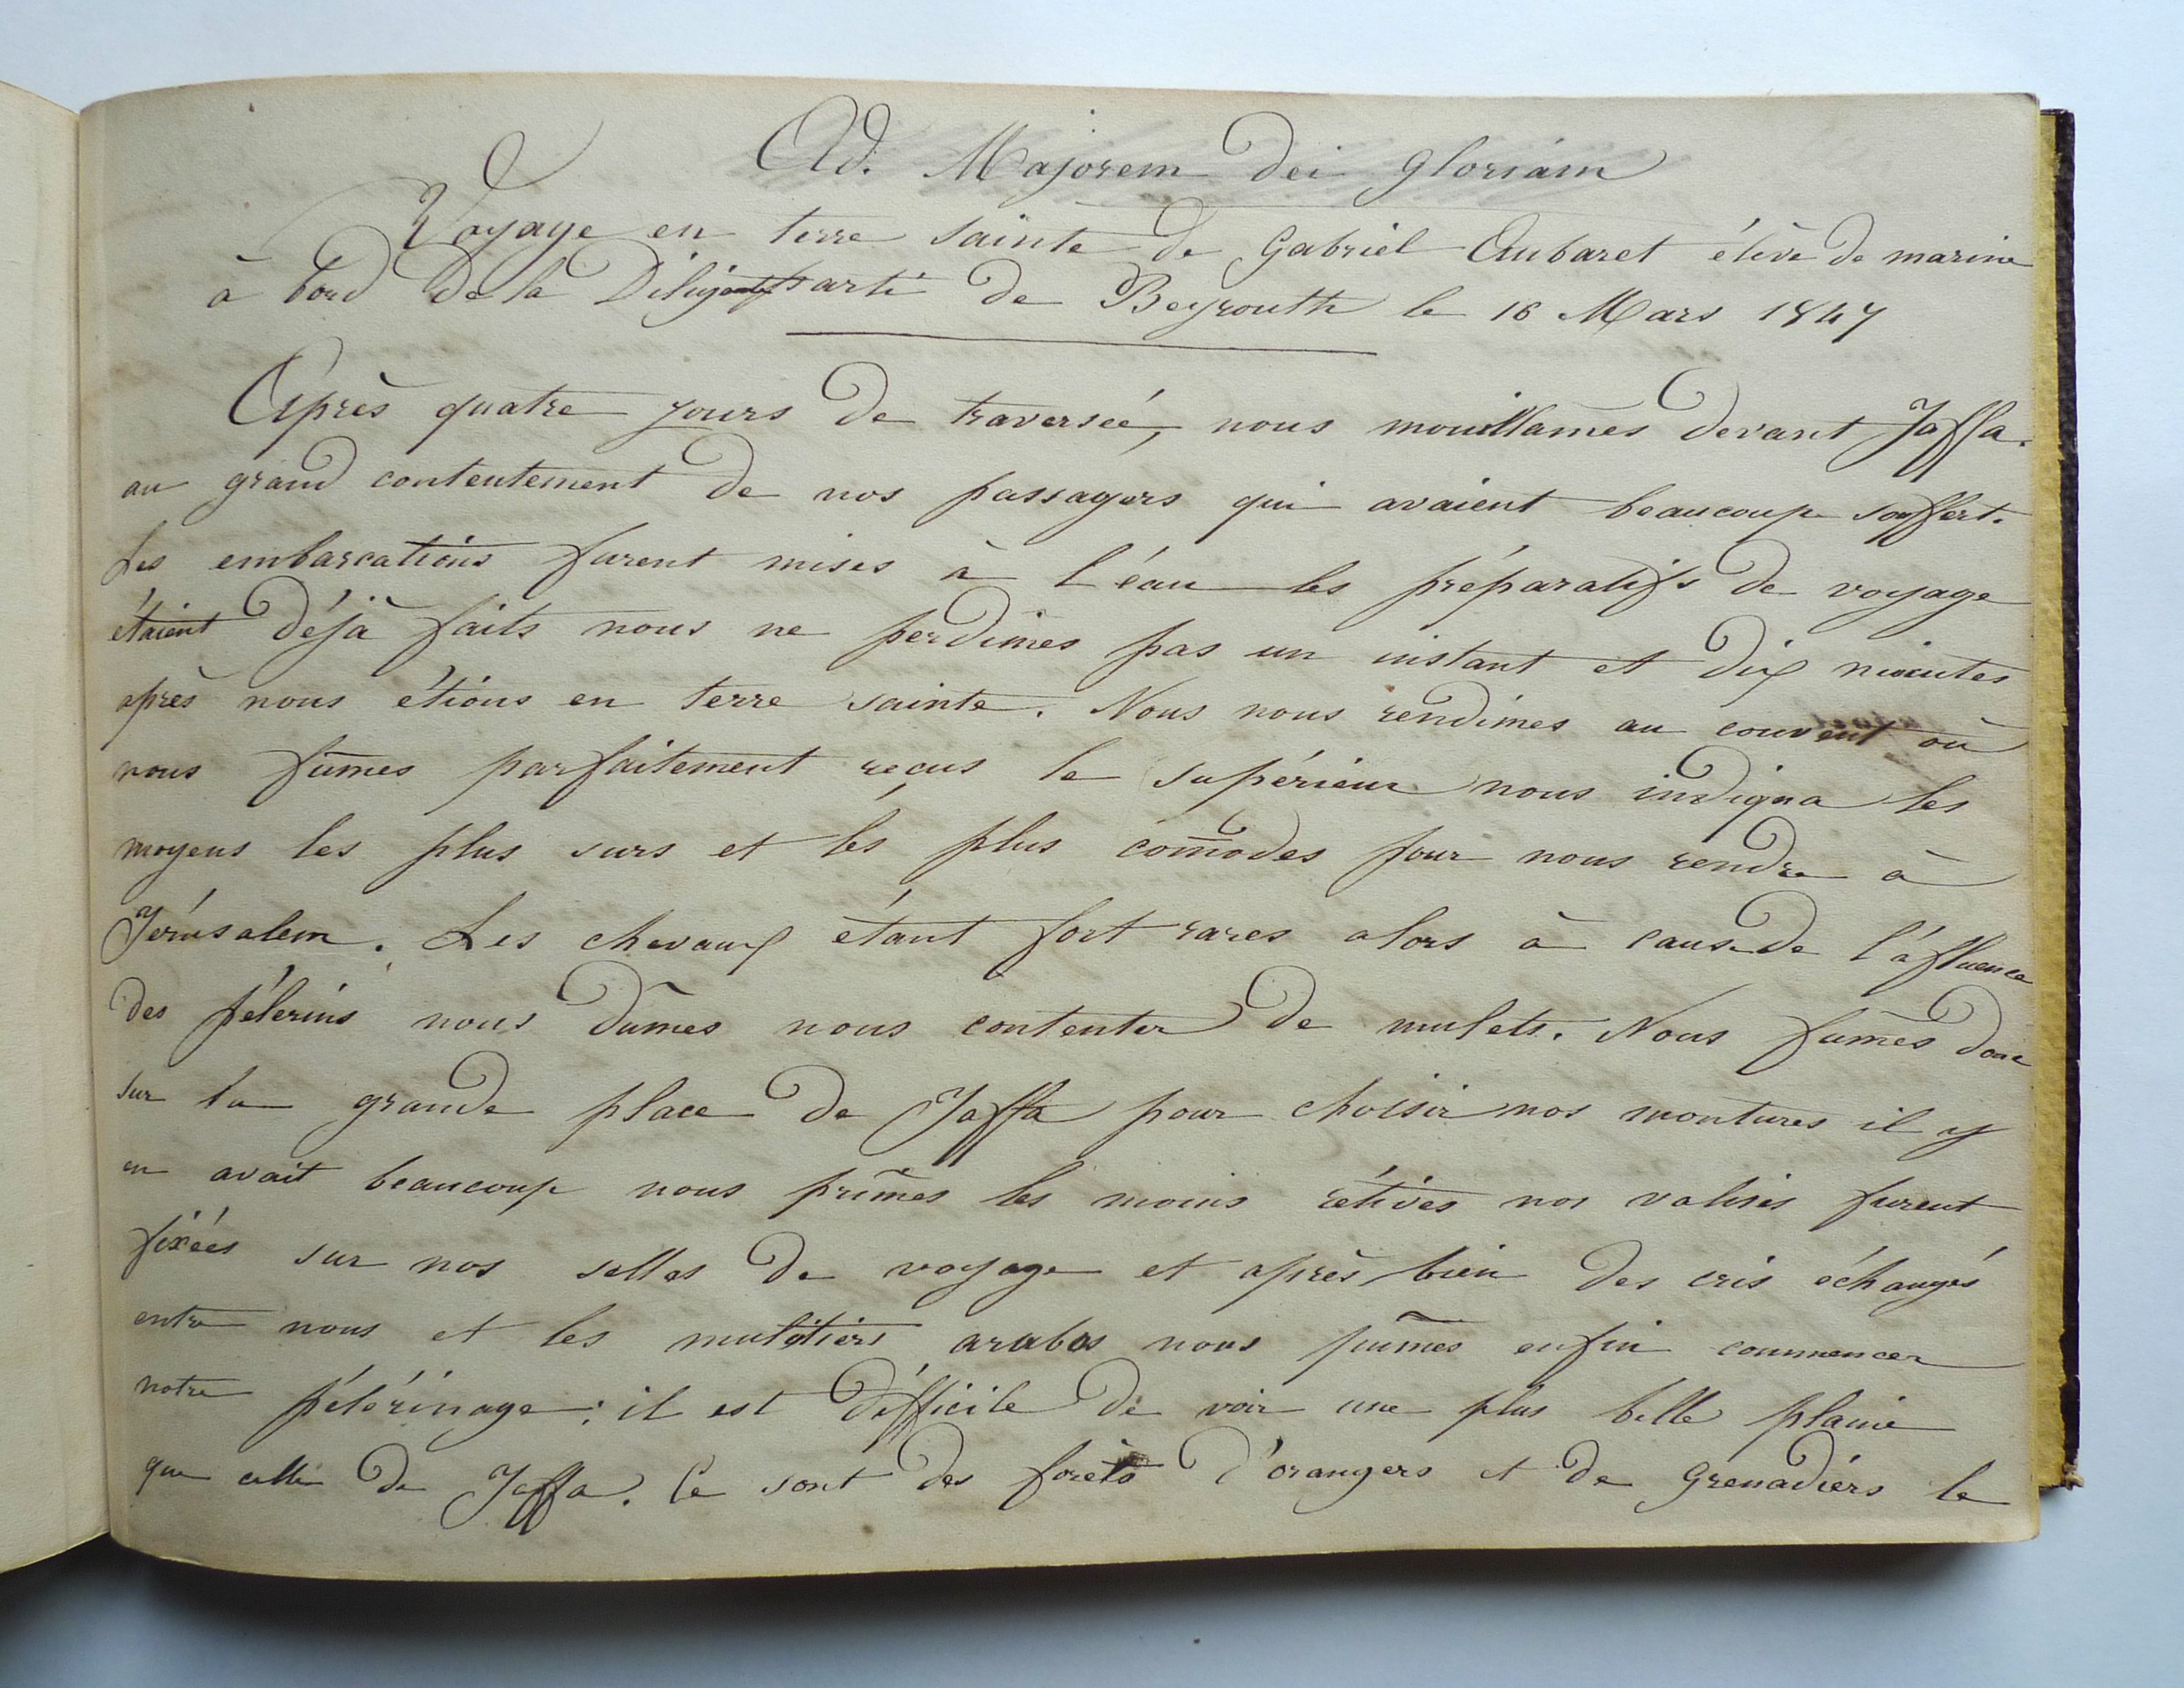 Ad. Majorem Dei gloriam
Voyage en terre sainte de Gabriel Aubaret élève de marine
à bord de la Diligente parti de Beyrouth le 16 Mars 1847
Après quatre jours de traverseé, nous mouillames devant Jaffa.
au grand contentement de nos passagers qui avaient beaucoup souffert.
Les embarcations furent mises à l'éau les préparatifs de voyage
étaient déjà faits nous ne perdimes pas un instant et dix minutes
après nous étions en terre sainte. Nous nous rendimes au couvent où
nous fûmes parfaitement reçus le supérieur nous indiqua les
moyens les plus surs et les plus com̄odes pour nous rendre à
Jérusalem. Les chevaux étant fort rares alors à cause de l'afluence
des pélerins nous dûmes nous contenter de mulets. Nous fûmes donc
sur la grande place de Jaffa pour choisir nos montures il y
en avait beaucoup nous prîmes les moins rétives nos valises furent
fixées sur nos selles de voyage et après bien des cris échangés
entre nous et les mulétiers arabes nous pûmes enfin commencer
notre pélérinage : il est difficile de voir une plus belle plaine
que celle de Jaffa. Ce sont des forêts d'orangers et de grenadiérs le